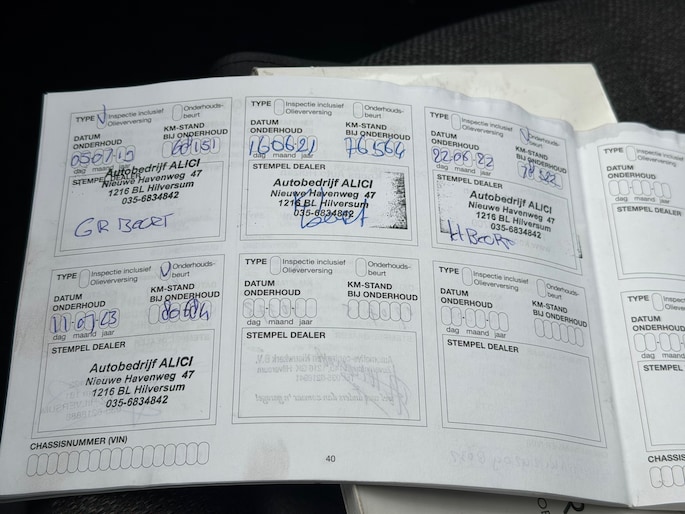 TYPE Inspectie inclusief Olieverversing Onderhouds-beurt
DATUM ONDERHOUD KM-STAND BIJ ONDERHOUD
05 07 19
dag maand jaar
STEMPEL DEALER
Autobedrijf ALICI
Nieuwe Havenweg 47
1216 BL Hilversum
035-6834842
GR Beurt
TYPE Inspectie inclusief Olieverversing Onderhouds-beurt
DATUM ONDERHOUD KM-STAND BIJ ONDERHOUD
16 06 21 76564
dag maand jaar
STEMPEL DEALER
Autobedrijf ALICI
Nieuwe Havenweg 47
1216 BL Hilversum
035-6834842
TYPE Inspectie inclusief Olieverversing Onderhouds-beurt
DATUM ONDERHOUD KM-STAND BIJ ONDERHOUD
22 06 22
dag maand jaar
STEMPEL DEALER
Autobedrijf ALICI
Nieuwe Havenweg 47
1216 BL Hilversum
035-6834842
H Beurt
TYPE
DATUM ONDERHOUD
dag maand jaar
STEMPEL DEALER
TYPE Inspectie inclusief Olieverversing Onderhouds-beurt
DATUM ONDERHOUD KM-STAND BIJ ONDERHOUD
11-07-23
dag maand jaar
STEMPEL DEALER
Autobedrijf ALICI
Nieuwe Havenweg 47
1216 BL Hilversum
035-6834842
TYPE Inspectie inclusief Olieverversing Onderhouds-beurt
DATUM ONDERHOUD KM-STAND BIJ ONDERHOUD
dag maand jaar
STEMPEL DEALER
TYPE Inspectie inclusief Olieverversing Onderhouds-beurt
DATUM ONDERHOUD KM-STAND BIJ ONDERHOUD
dag maand jaar
STEMPEL DEALER
TYPE
DATUM ONDERHOUD
dag maand jaar
STEMPEL
CHASSISNUMMER (VIN)
40
CHASS